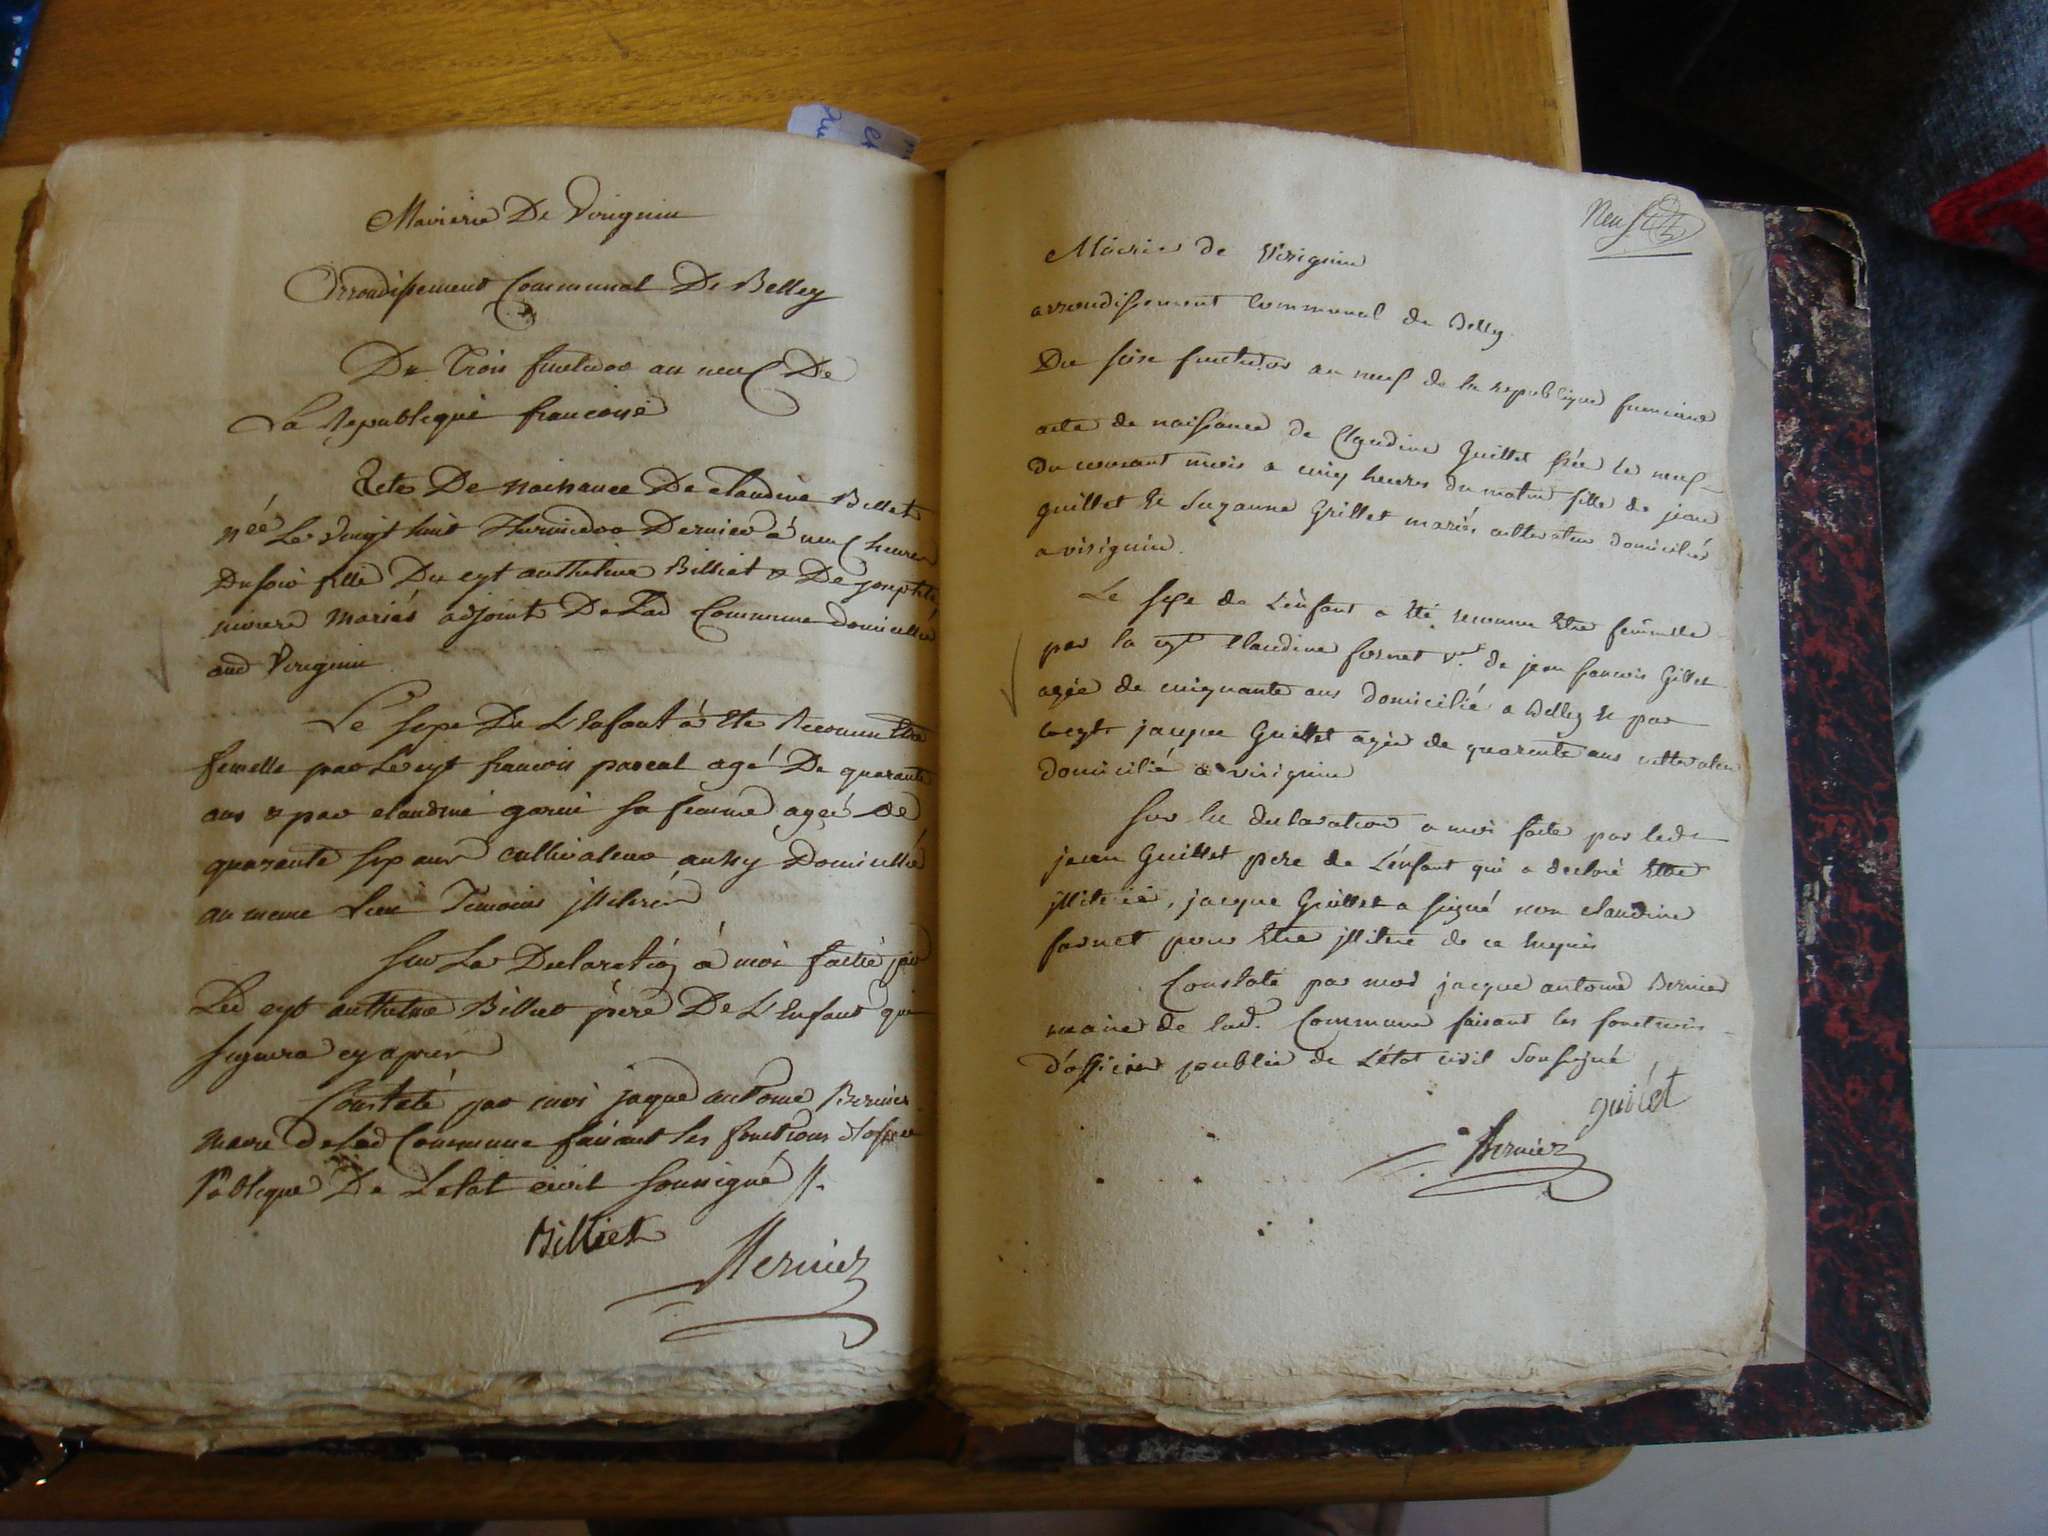 Mairie De Virignin
Arrondissement Communal De Belley
Du Trois fructidor an neuf De
La Republique francoise
Acte De naissance De claudine Billiet
née Le vingt huit Thermidor Dernier à neuf heures
Du soir fille Du cyt anthelme Billiet & De josephte
mariés adjoint De Lad Commune domicillié
aud Virignin
Le sexe De L'Enfant à Eté Reconnu Etre
femelle par Le cyt francois pascal agé De quarante
ans & par claudine gorin sa femme ageé de
quarante sept ans cultivateur aussy Domicillié
au meme Lieu Temoins illiterés
Sur La Declaration à moi faitte par
Led cyt anthelme Billiet père De L'Enfant qui
signera cy apres
Constaté par moi jaque antoine Bernier
maire de lad Commune faisant les fonctions d'officier
Publique De L'etat civil soussigné
Billiet
Bernier
Neuf
Mairie de Virignin
arrondissement Communal de Belley.
Du seise fructidor an neuf de la republique francaise
acte de naissance de Claudine Guillet née le neuf
du courant mois a cinq heures du matin fille de jean
guillet & Suzanne Grillet mariés cultivateur domiciliés
a virignin.
Le sexe de L'enfant a été reconnu Etre femmelle
par la cyt Claudine fornet v.e de jean francois Gillet
agée de cinquante ans domicilié a Belley & par
le cyt jacque Guillet agée de quarente ans cultivateur
domicilié a virignin
Sur la declaration a moi faite par led
jean Guillet pere de L'énfant qui a declaré Etre
illiterée, jacque Guillet a signé non claudine
fornet pour Etre illiteré de ce requis
Constaté par moi jacque antoine Bernier
maire de lad. Commune faisant les fonctions
d'officier public de L'état civil Soussigné
guilét
Bernier